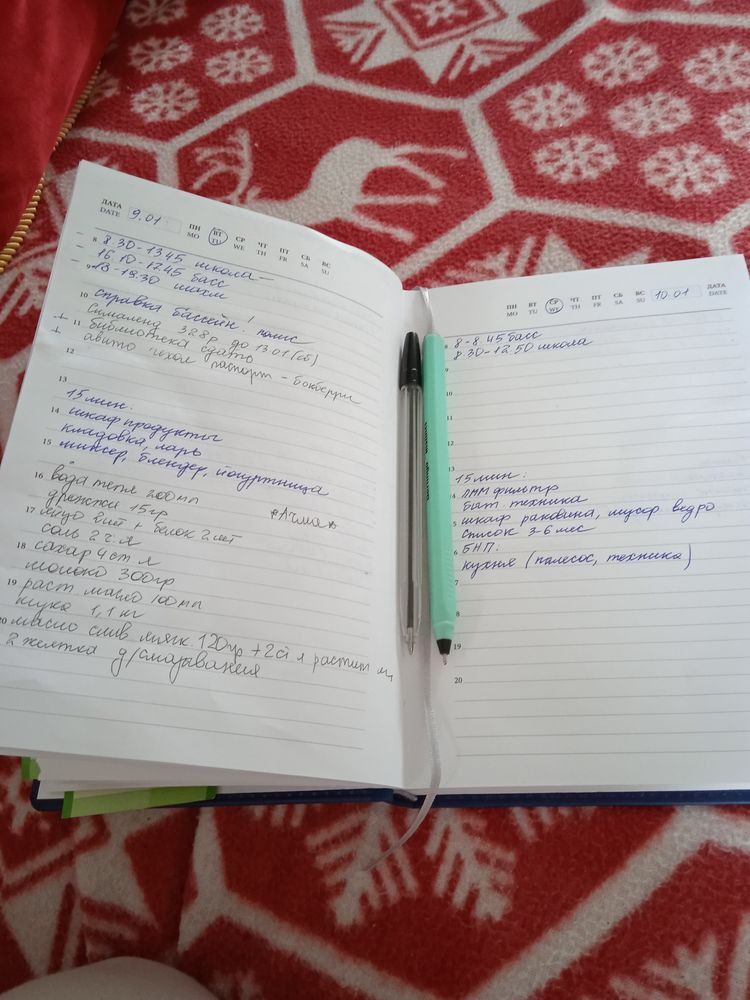 ДАТА
DATE
9.01
ПН ВТ СР ЧТ ПТ СБ ВС
MO TU WE TH FR SA SU
- 8 8.30-13.45 школа -
- 16.10-17.45 басс
- 9 18-19.30 шахм
10 справка бассейн! полис
328 р до 13.01 (сб)
+ 11 библиотека сдать
+ авито чехол паспорт - боксберри
12
13
15 мин.
14 шкаф продукты
кладовка, ларь
15 миксер, блендер, йогуртница
16 вода тепл 200 мл
дрожжи 15 гр
17 яйцо 2 шт + белок 2 шт
*Ачма*
соль 2 ч. л
18 сахар 4 ст л
молоко 300 гр
19 раст масло 100 мл
мука 1,1 кг
20 масло слив мягк 120 гр + 2 ст л растит м
2 желтка д/смазывания
ПН ВТ СР ЧТ ПТ СБ ВС
MO TU WE TH FR SA SU
10.01
ДАТА
DATE
8 8-8.45 басс
8.30-12.50 школа
9
10
11
12
13
15 мин.
4 ПММ фильтр
быт. техника
5 шкаф раковина, мусор ведро
список 3-6 мес
6 БНП:
кухня (пылесос, техника)
7
8
19
20